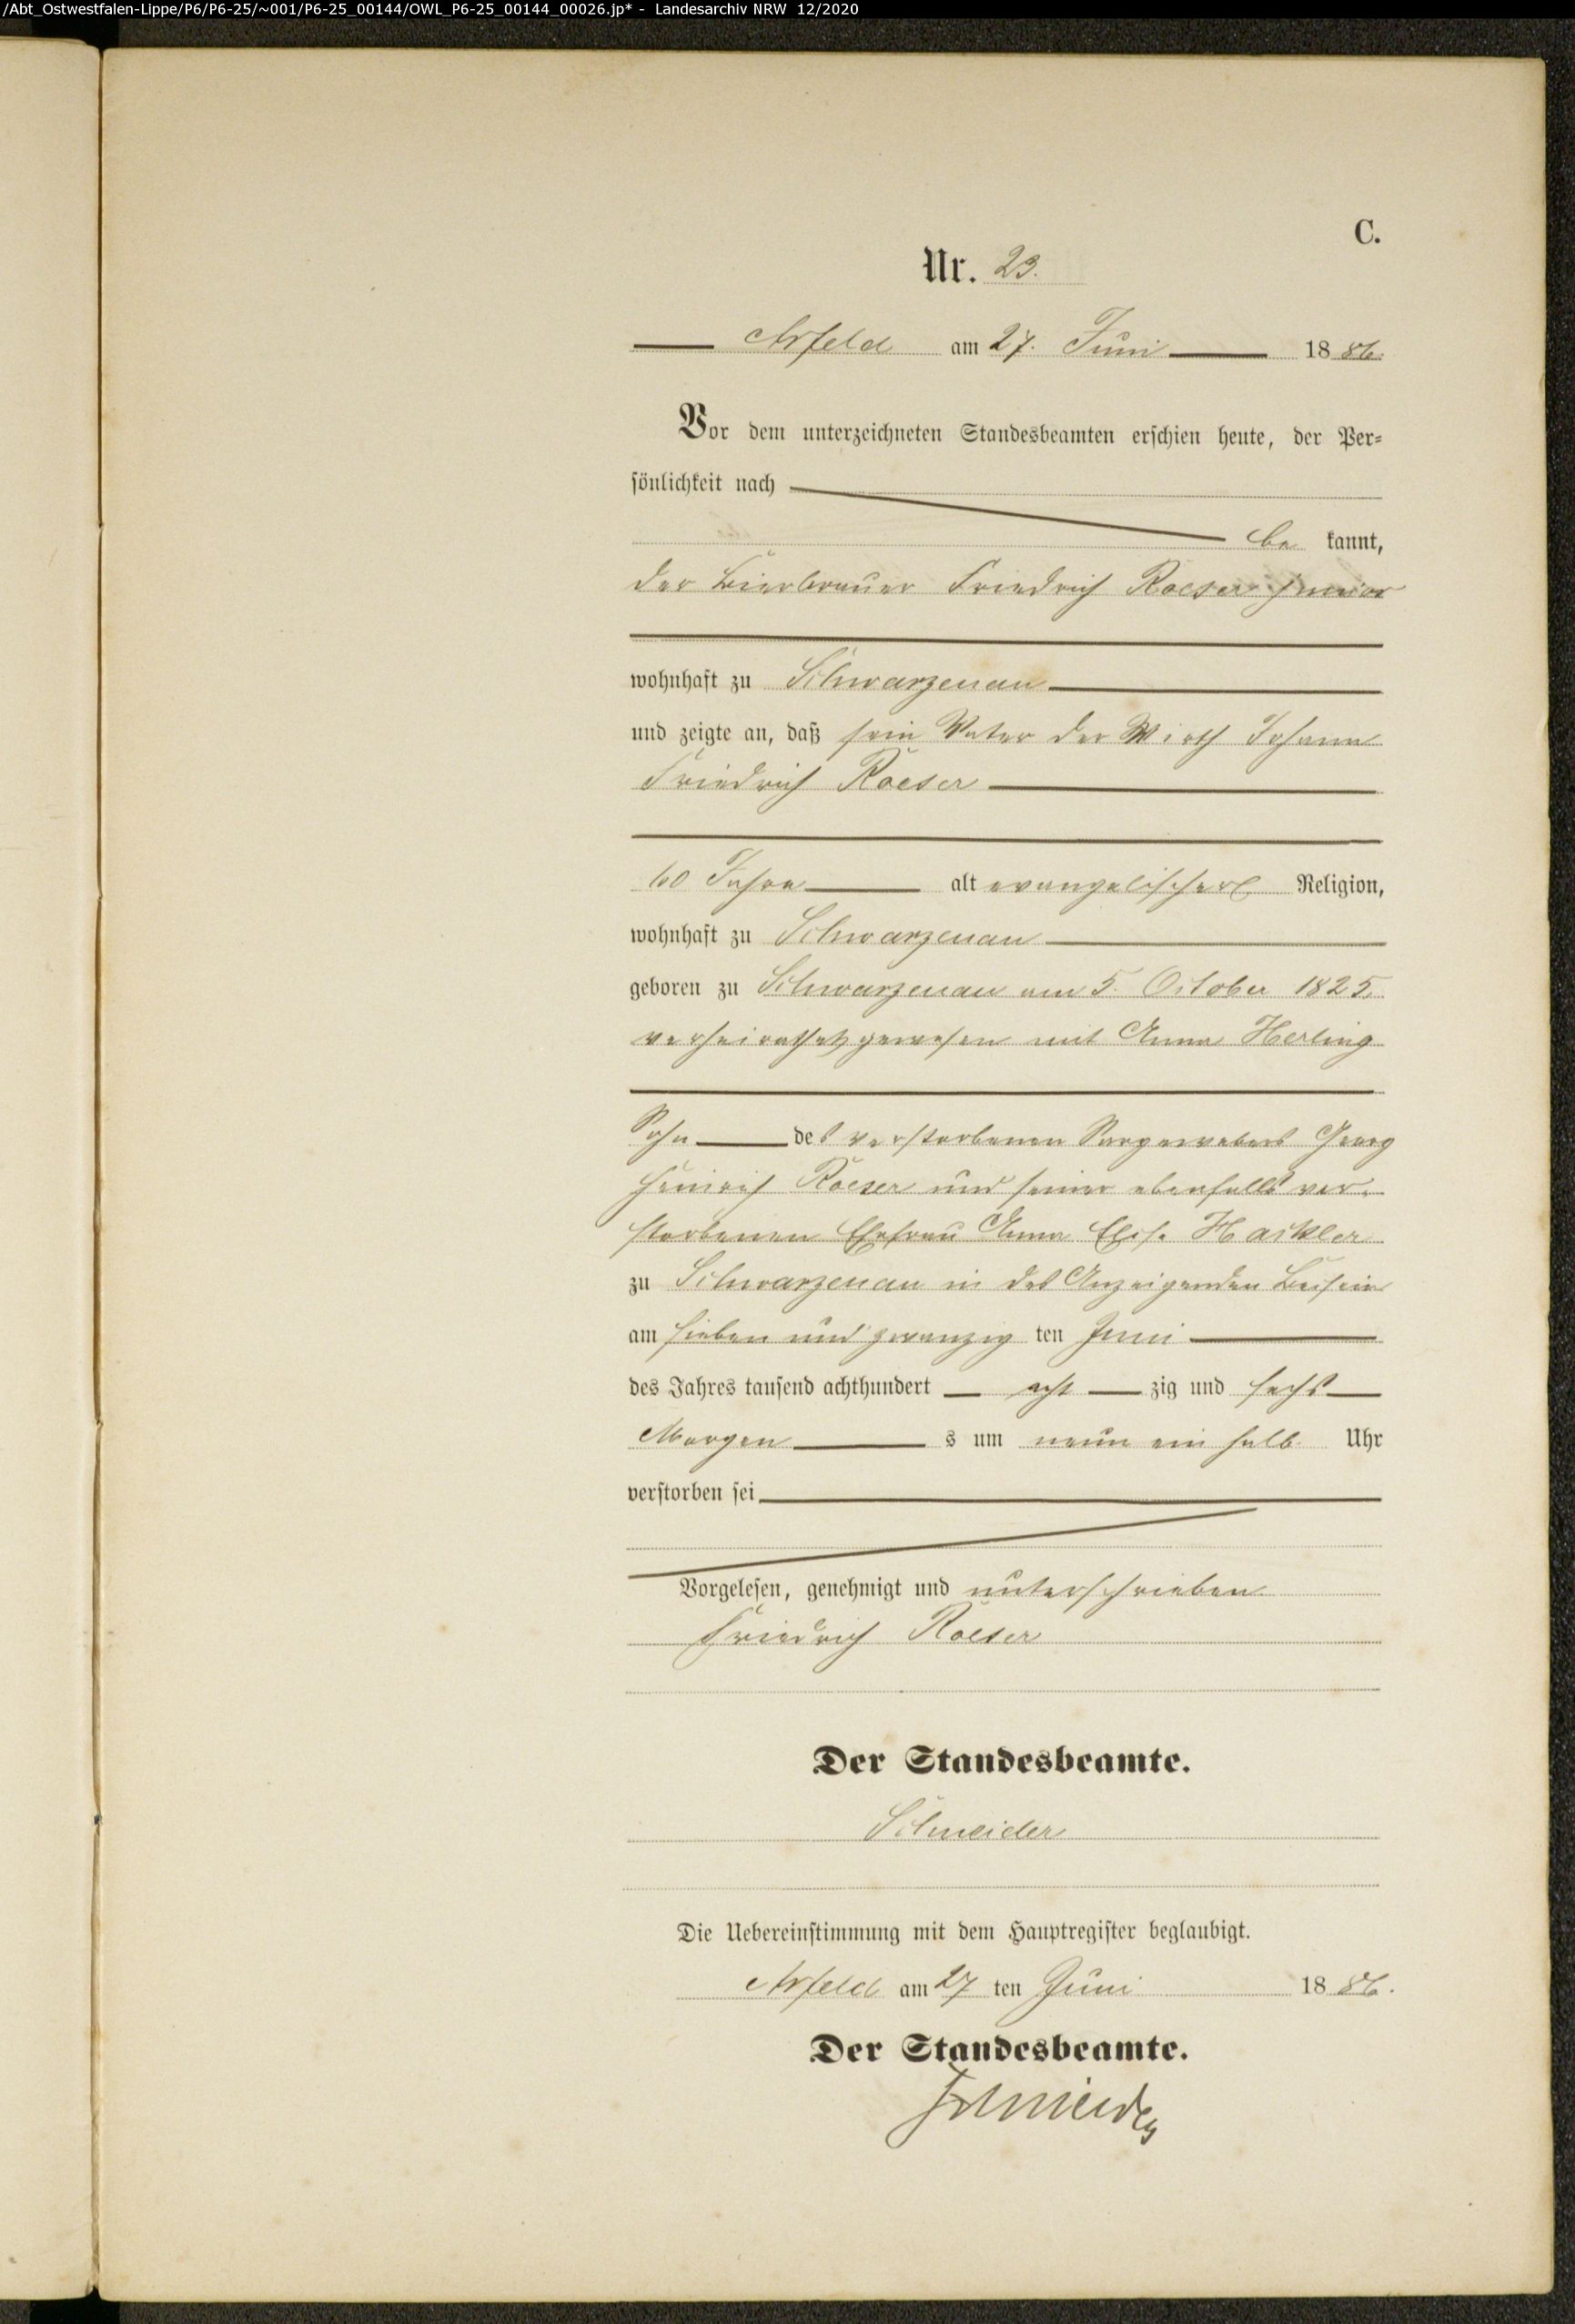 /Abt_Ostwestfalen-Lippe/P6/P6-25/~001/P6-25_00144/OWL_P6-25_00144_00026.jp* - Landesarchiv NRW 12/2020
C.
Nr. 23.
Arfeld am 27. Juni 1886.
Vor dem unterzeichneten Standesbeamten erschien heute, der Per-
sönlichkeit nach
be kannt,
der Bierbrauer Friedrich Roeser junior
wohnhaft zu Schwarzenau
und zeigte an, daß sein Vater der Wirth Johann
Friedrich Roeser
60 Jahre alt evangelischer Religion,
wohnhaft zu Schwarzenau
geboren zu Schwarzenau am 5. October 1825.
verheirathet gewesen mit Anna Herling
Sohn des verstorbenen Georg
Heinrich Roeser und seiner ebenfalls ver-
storbenen Ehefrau Anna Elise Hackler
zu Schwarzenau in des Anzeigenden Beisein
am sieben und zwanzig ten Juni
des Jahres tausend achthundert acht zig und sechs
Morgen s um neun ein halb Uhr
verstorben sei
Vorgelesen, genehmigt und unterschrieben
Friedrich Roeser
Der Standesbeamte.
Schneider
Die Uebereinstimmung mit dem Hauptregister beglaubigt.
Arfeld am 27 ten Juni 1886.
Der Standesbeamte.
Schneider